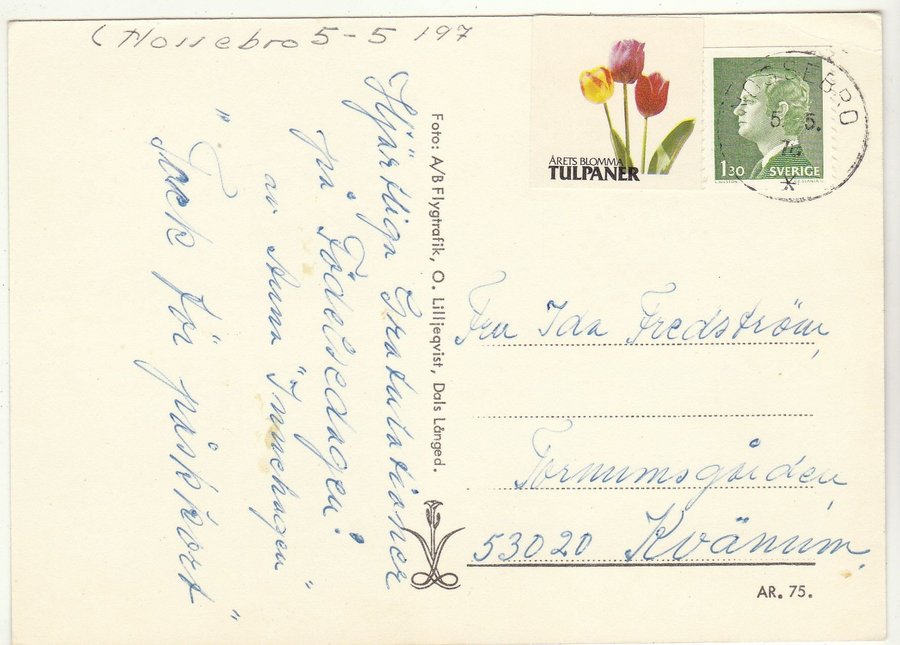 (Nossebro 5-5 197
Hjärtliga Gratulationer
på Födelsedagen.
av Anna "Innehagen"
"Tack för påskkort"
Foto: A/B Flygtrafik, O. Lilljeqvist, Dals Långed.
ÅRETS BLOMMA
TULPANER
1.30 SVERIGE
NOSSEBRO
5. 5.
Fru Ida Fredström,
Tormumsgården
53020 Kvänum,
AR. 75.